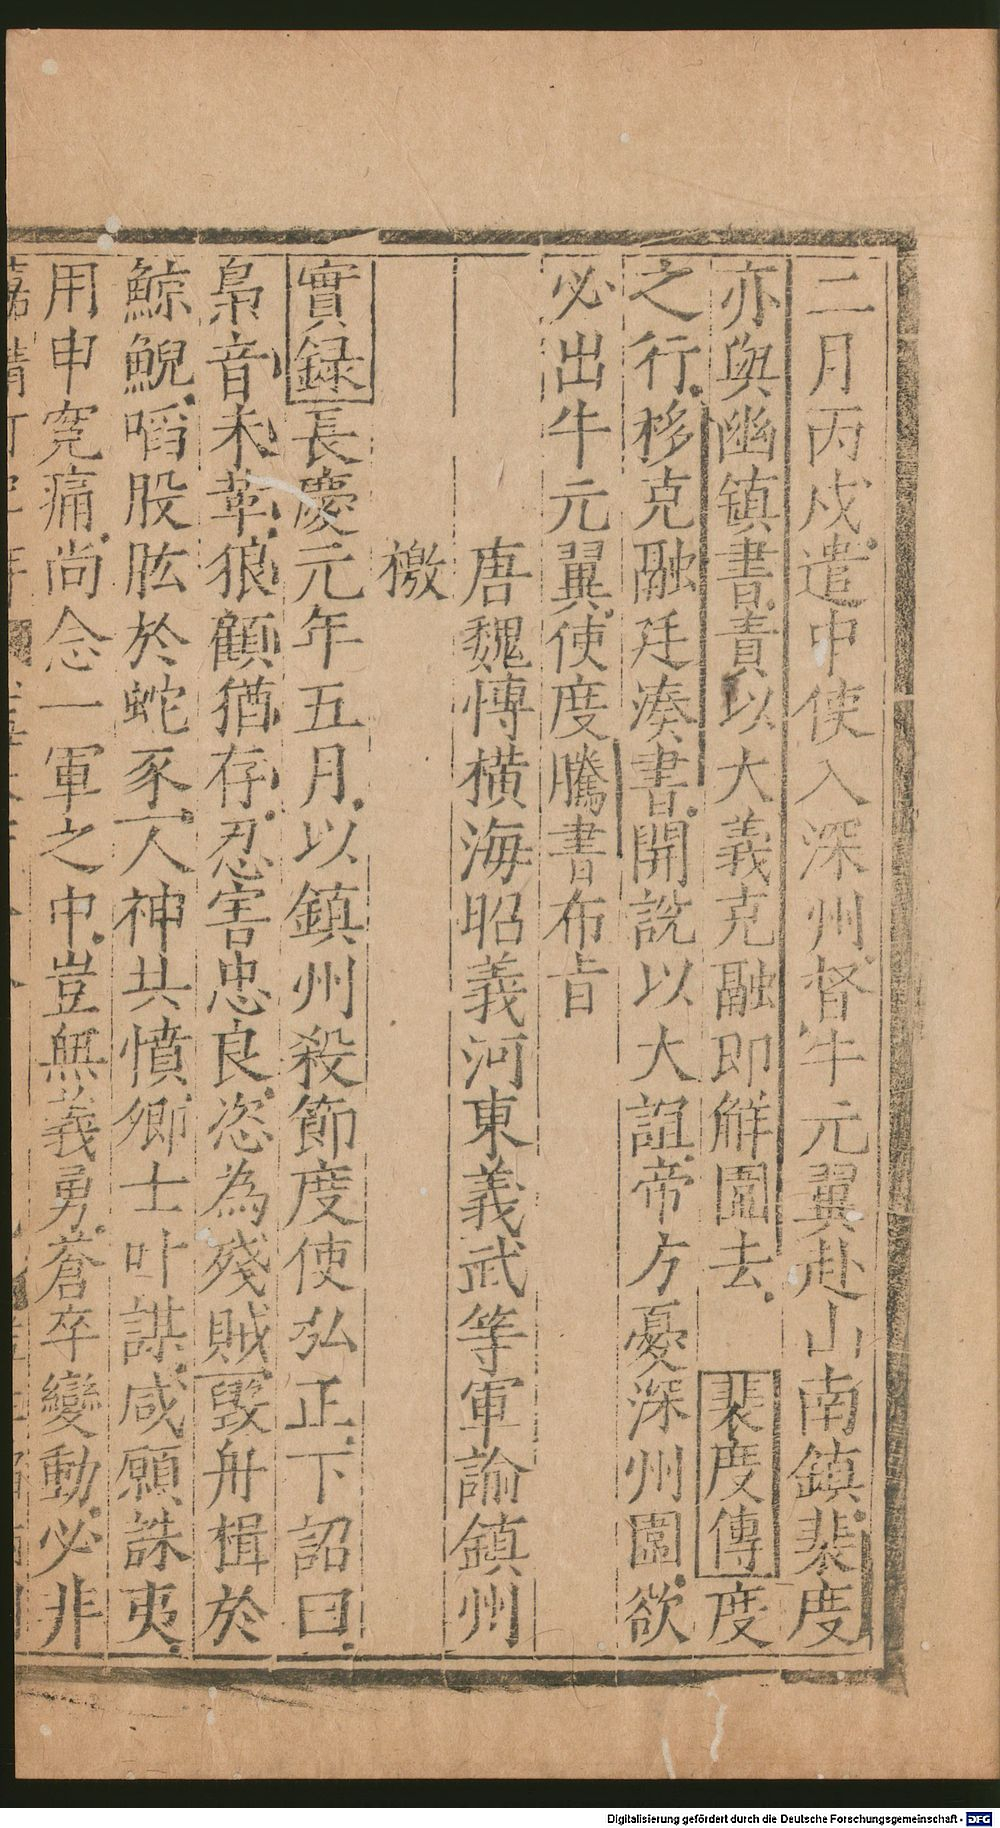 二月丙戍遣中使入深州督牛元翼赴山南鎮裴度
亦與幽鎮書責以大義克融即解圍去裴度傳度
之行移克融廷湊書開說以大誼帝方憂深州圍欲
必出牛元翼使度騰書布旨
唐魏博橫海昭義河東義武等軍諭鎮州
檄
實録長慶元年五月以鎮州殺節度使弘正下詔曰
梟音未革狼顧猶存忍害忠良恣為殘賊毀舟楫於
鯨鯢啗股肱於蛇豕人神共憤卿士叶謀咸願誅夷
用申寃痛尚念一軍之中豈無義勇蒼卒變動必非
Digitalisierung gefördert durch die Deutsche Forschungsgemeinschaft - DFG